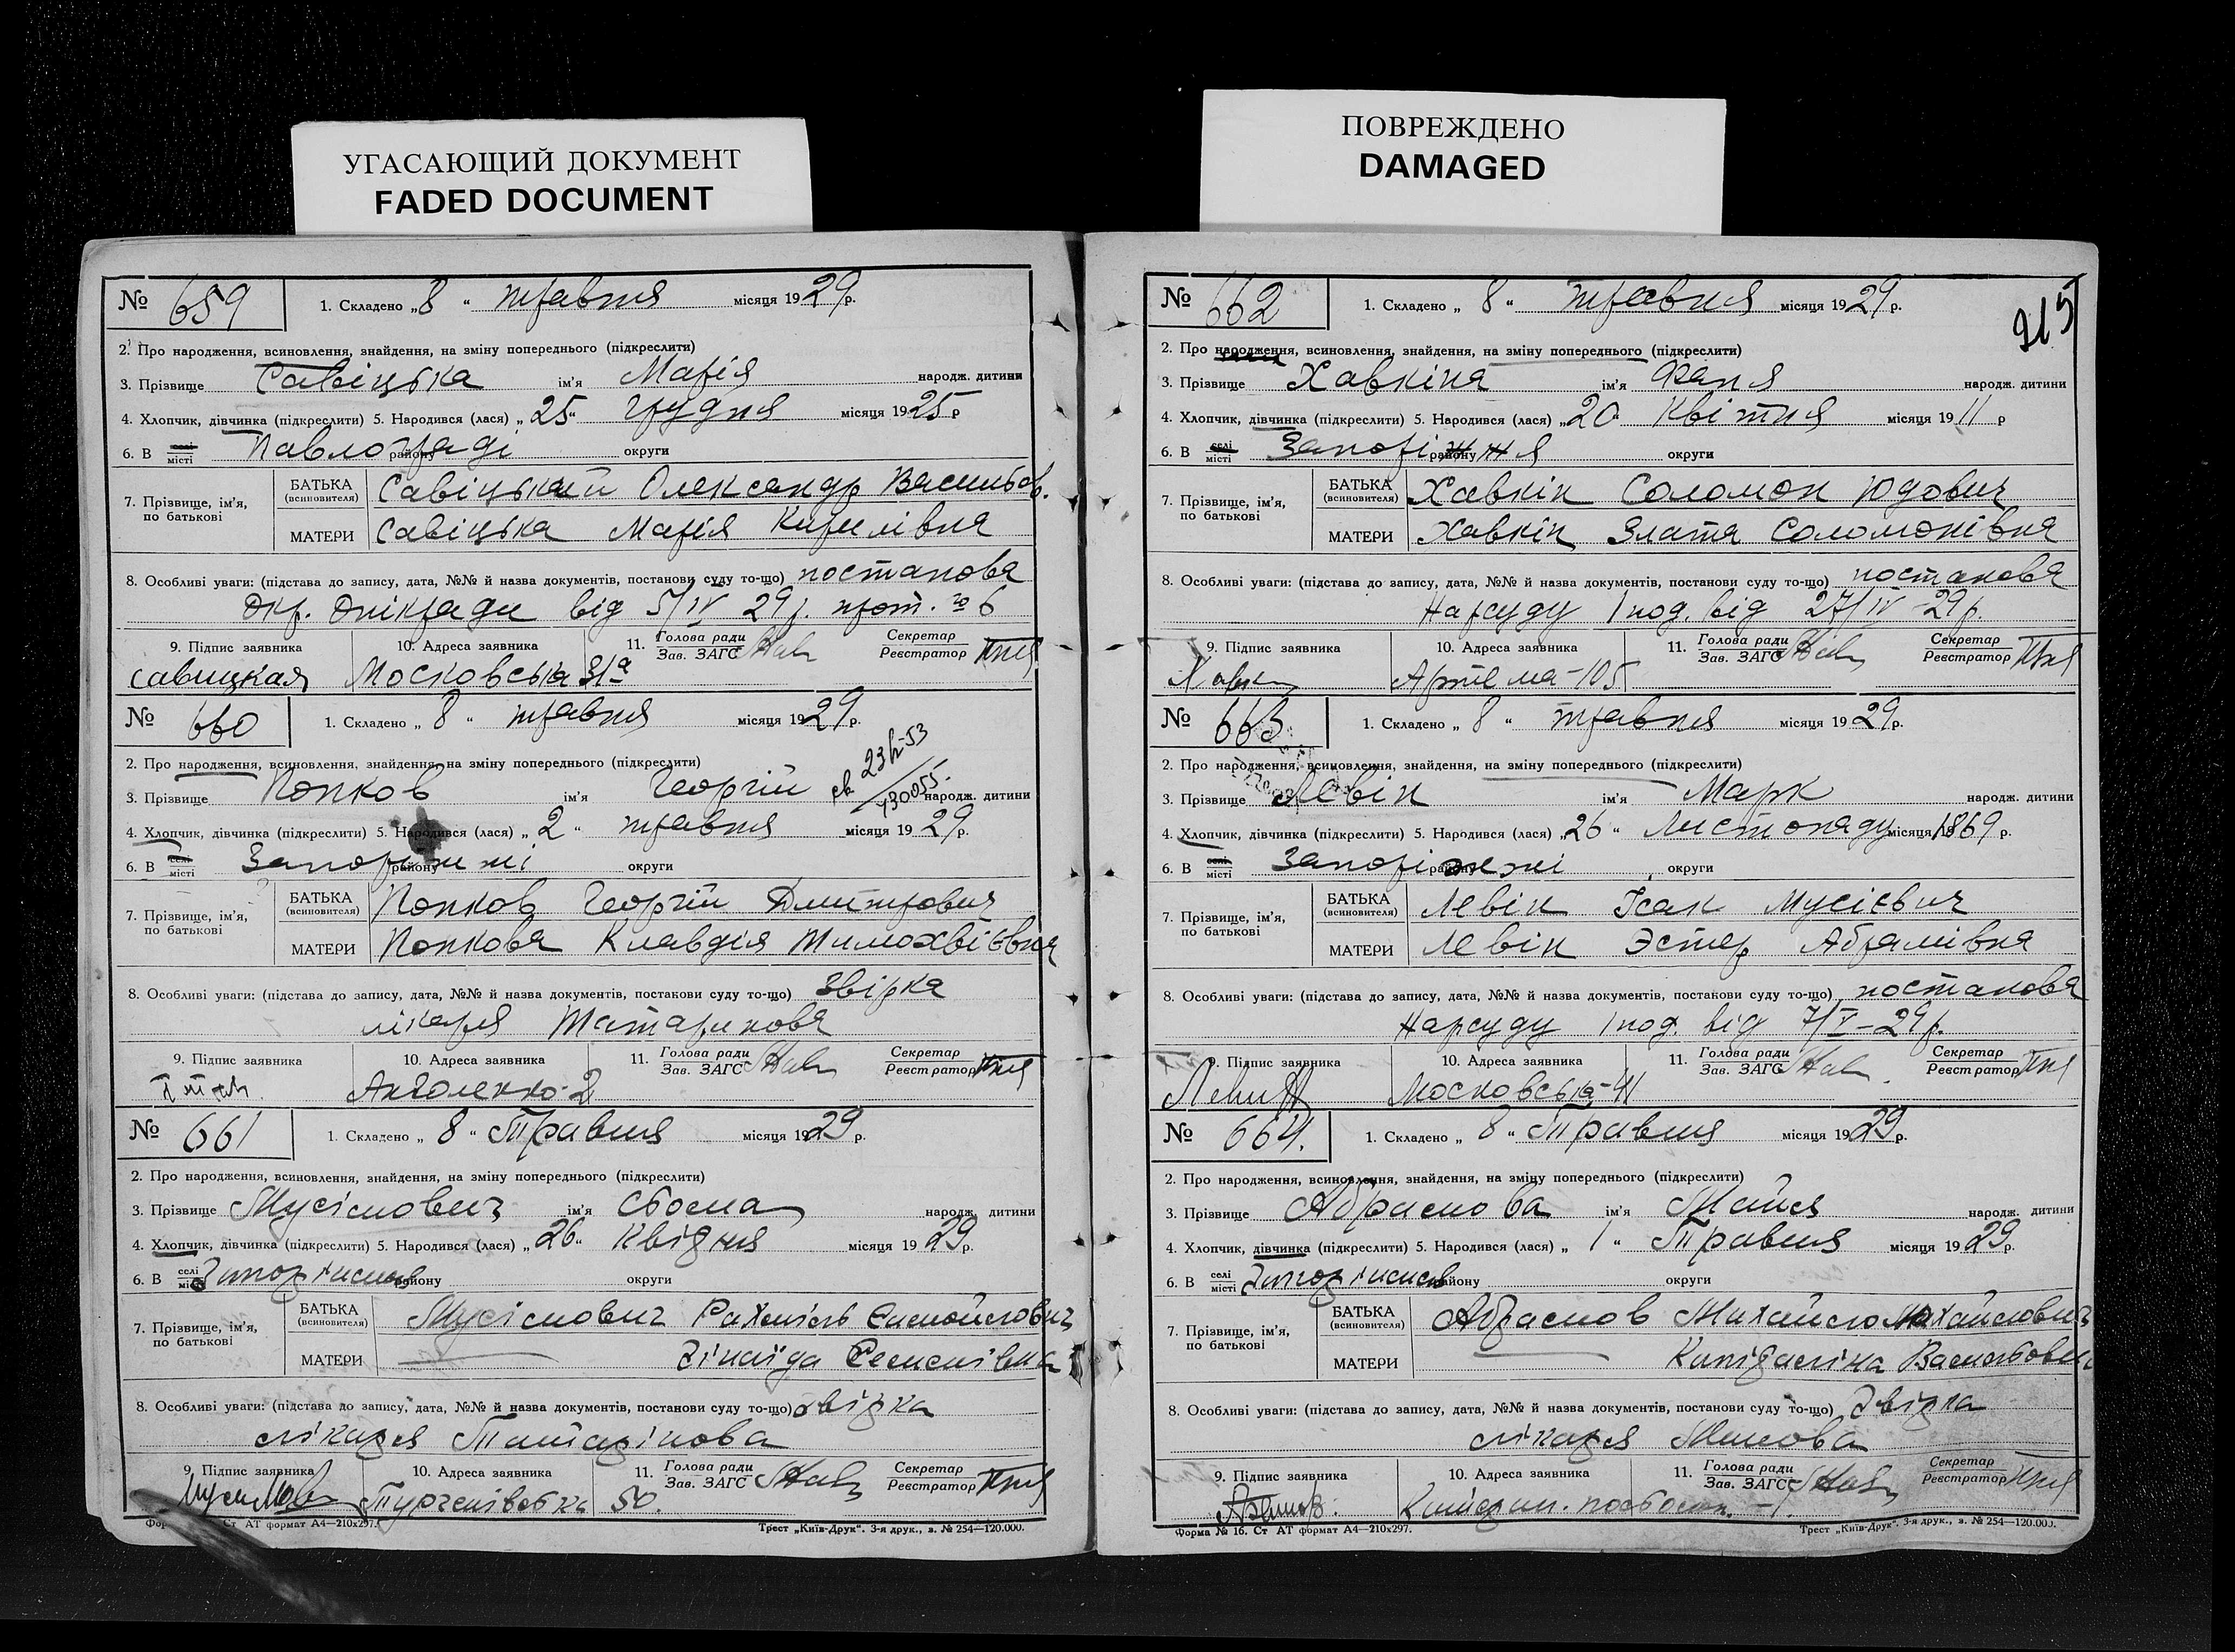 УГАСАЮЩИЙ ДОКУМЕНТ
FADED DOCUMENT
ПОВРЕЖДЕНО
DAMAGED
№ 659 1. Складено „8“ травня місяця 1929р.
2. Про народження, всиновлення, знайдення, на зміну попереднього (підкреслити)
3. Прізвище Савіцька ім'я Марія народж. дитини
4. Хлопчик, дівчинка (підкреслити) 5. Народився (лася) „25“ грудня місяця 1925р
6. В селі місті Павлограді району округи
7. Прізвище, ім'я, по батькові
БАТЬКА (всиновителя) Савіцький Олександр Васильов.
МАТЕРИ Савіцька Марія Кирилівна
8. Особливі уваги: (підстава до запису, дата, №№ й назва документів, постанови суду то-що) постанова
Окр. Опікради від 5/IV 29р. прот. № 6
9. Підпис заявника 10. Адреса заявника 11. Голова ради Зав. ЗАГС Секретар Реєстратор
Савицкая Московська 31а
№ 660 1. Складено „8“ травня місяця 1929р.
2. Про народження, всиновлення, знайдення, на зміну попереднього (підкреслити)
3. Прізвище Попков ім'я Георгій народж. дитини
4. Хлопчик, дівчинка (підкреслити) 5. Народився (лася) „2“ травня місяця 1929р.
6. В селі місті Запоріжжі району округи
7. Прізвище, ім'я, по батькові
БАТЬКА (всиновителя) Попков Георгій Дмитрович
МАТЕРИ Попкова Клавдія Тимохвієвна
8. Особливі уваги: (підстава до запису, дата, №№ й назва документів, постанови суду то-що) Звірка
лікаря Татаринова
9. Підпис заявника 10. Адреса заявника 11. Голова ради Зав. ЗАГС Секретар Реєстратор
Анголенко-2
№ 661 1. Складено „8“ Травня місяця 1929р.
2. Про народження, всиновлення, знайдення, на зміну попереднього (підкреслити)
3. Прізвище Мусімович ім'я народж. дитини
4. Хлопчик, дівчинка (підкреслити) 5. Народився (лася) „26“ Квідня місяця 1929р.
6. В селі місті району округи
7. Прізвище, ім'я, по батькові
БАТЬКА (всиновителя) Мусімович
МАТЕРИ Зінаїда
8. Особливі уваги: (підстава до запису, дата, №№ й назва документів, постанови суду то-що) Звірка
лікаря Татарінова
9. Підпис заявника 10. Адреса заявника 11. Голова ради Зав. ЗАГС Секретар Реєстратор
50.
Ст АТ формат А4—210х297. Трест „Київ-Друк“. 3-я друк., з. № 254—120.000.
215
№ 662 1. Складено „8“ травня місяця 1929р.
2. Про народження, всиновлення, знайдення, на зміну попереднього (підкреслити)
3. Прізвище Хавкіня ім'я Фаня народж. дитини
4. Хлопчик, дівчинка (підкреслити) 5. Народився (лася) „20 Квітня місяця 1911 р
6. В селі місті Запоріжжя району округи
7. Прізвище, ім'я, по батькові
БАТЬКА (всиновителя) Хавкін Соломон Юдович
МАТЕРИ Хавкін Злата Соломонівна
8. Особливі уваги: (підстава до запису, дата, №№ й назва документів, постанови суду то-що) постанова
Нарсуду 1 под. від 27/IV-29р.
9. Підпис заявника 10. Адреса заявника 11. Голова ради Зав. ЗАГС Секретар Реєстратор
Артема-105
№ 663 1. Складено „8“ травня місяця 1929р.
2. Про народження, всиновлення, знайдення, на зміну попереднього (підкреслити)
3. Прізвище Левін ім'я Марк народж. дитини
4. Хлопчик, дівчинка (підкреслити) 5. Народився (лася) „26“ Листопаду місяця 1869 р.
6. В селі місті Запоріжжі району округи
7. Прізвище, ім'я, по батькові
БАТЬКА (всиновителя) Левін Ісак Мусієвич
МАТЕРИ Левін Эстер Абрамівна
8. Особливі уваги: (підстава до запису, дата, №№ й назва документів, постанови суду то-що) постанова
Нарсуду 1 под. від 7/V-29р.
9. Підпис заявника 10. Адреса заявника 11. Голова ради Зав. ЗАГС Секретар Реєстратор
Московська-41
№ 664. 1. Складено „8“ Травня місяця 1929р.
2. Про народження, всиновлення, знайдення, на зміну попереднього (підкреслити)
3. Прізвище Абрамова ім'я Майя народж. дитини
4. Хлопчик, дівчинка (підкреслити) 5. Народився (лася) „1“ Травня місяця 1929р.
6. В селі місті району округи
7. Прізвище, ім'я, по батькові
БАТЬКА (всиновителя) Абрамов Михайло Михайлович
МАТЕРИ
8. Особливі уваги: (підстава до запису, дата, №№ й назва документів, постанови суду то-що) Звірка
лікаря
9. Підпис заявника 10. Адреса заявника 11. Голова ради Зав. ЗАГС Секретар Реєстратор
Форма № 16. Ст АТ формат А4—210х297. Трест „Київ-Друк“. 3-я друк., з. № 254—120.000.